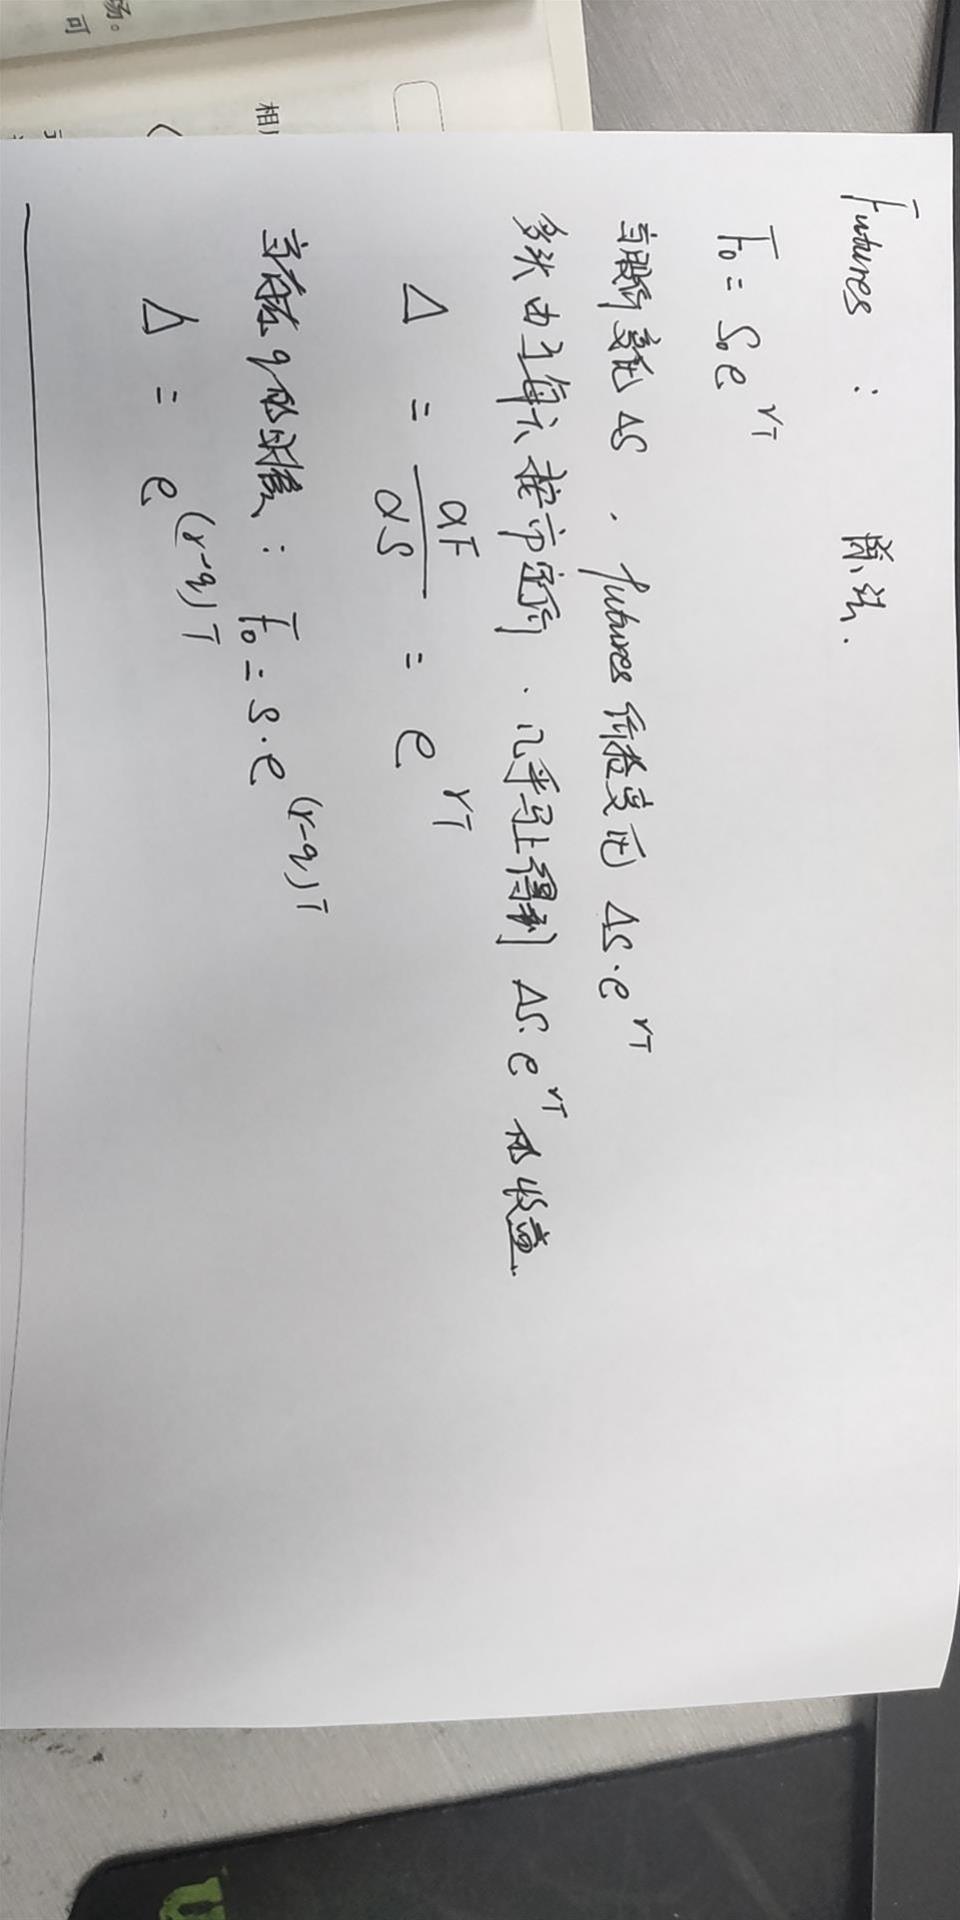 Futures :
F₀ = S₀e^{rT}
当股价变化 ΔS . futures 价格变化 ΔS·e^{rT}
多头由于每天按市定价 . 几乎马上得到 ΔS·e^{rT} 的收益.
Δ = ∂F/∂S = e^{rT}
当存在 q 的时候 : F₀ = S·e^{(r-q)T}
Δ = e^{(r-q)T}
相
场。
可